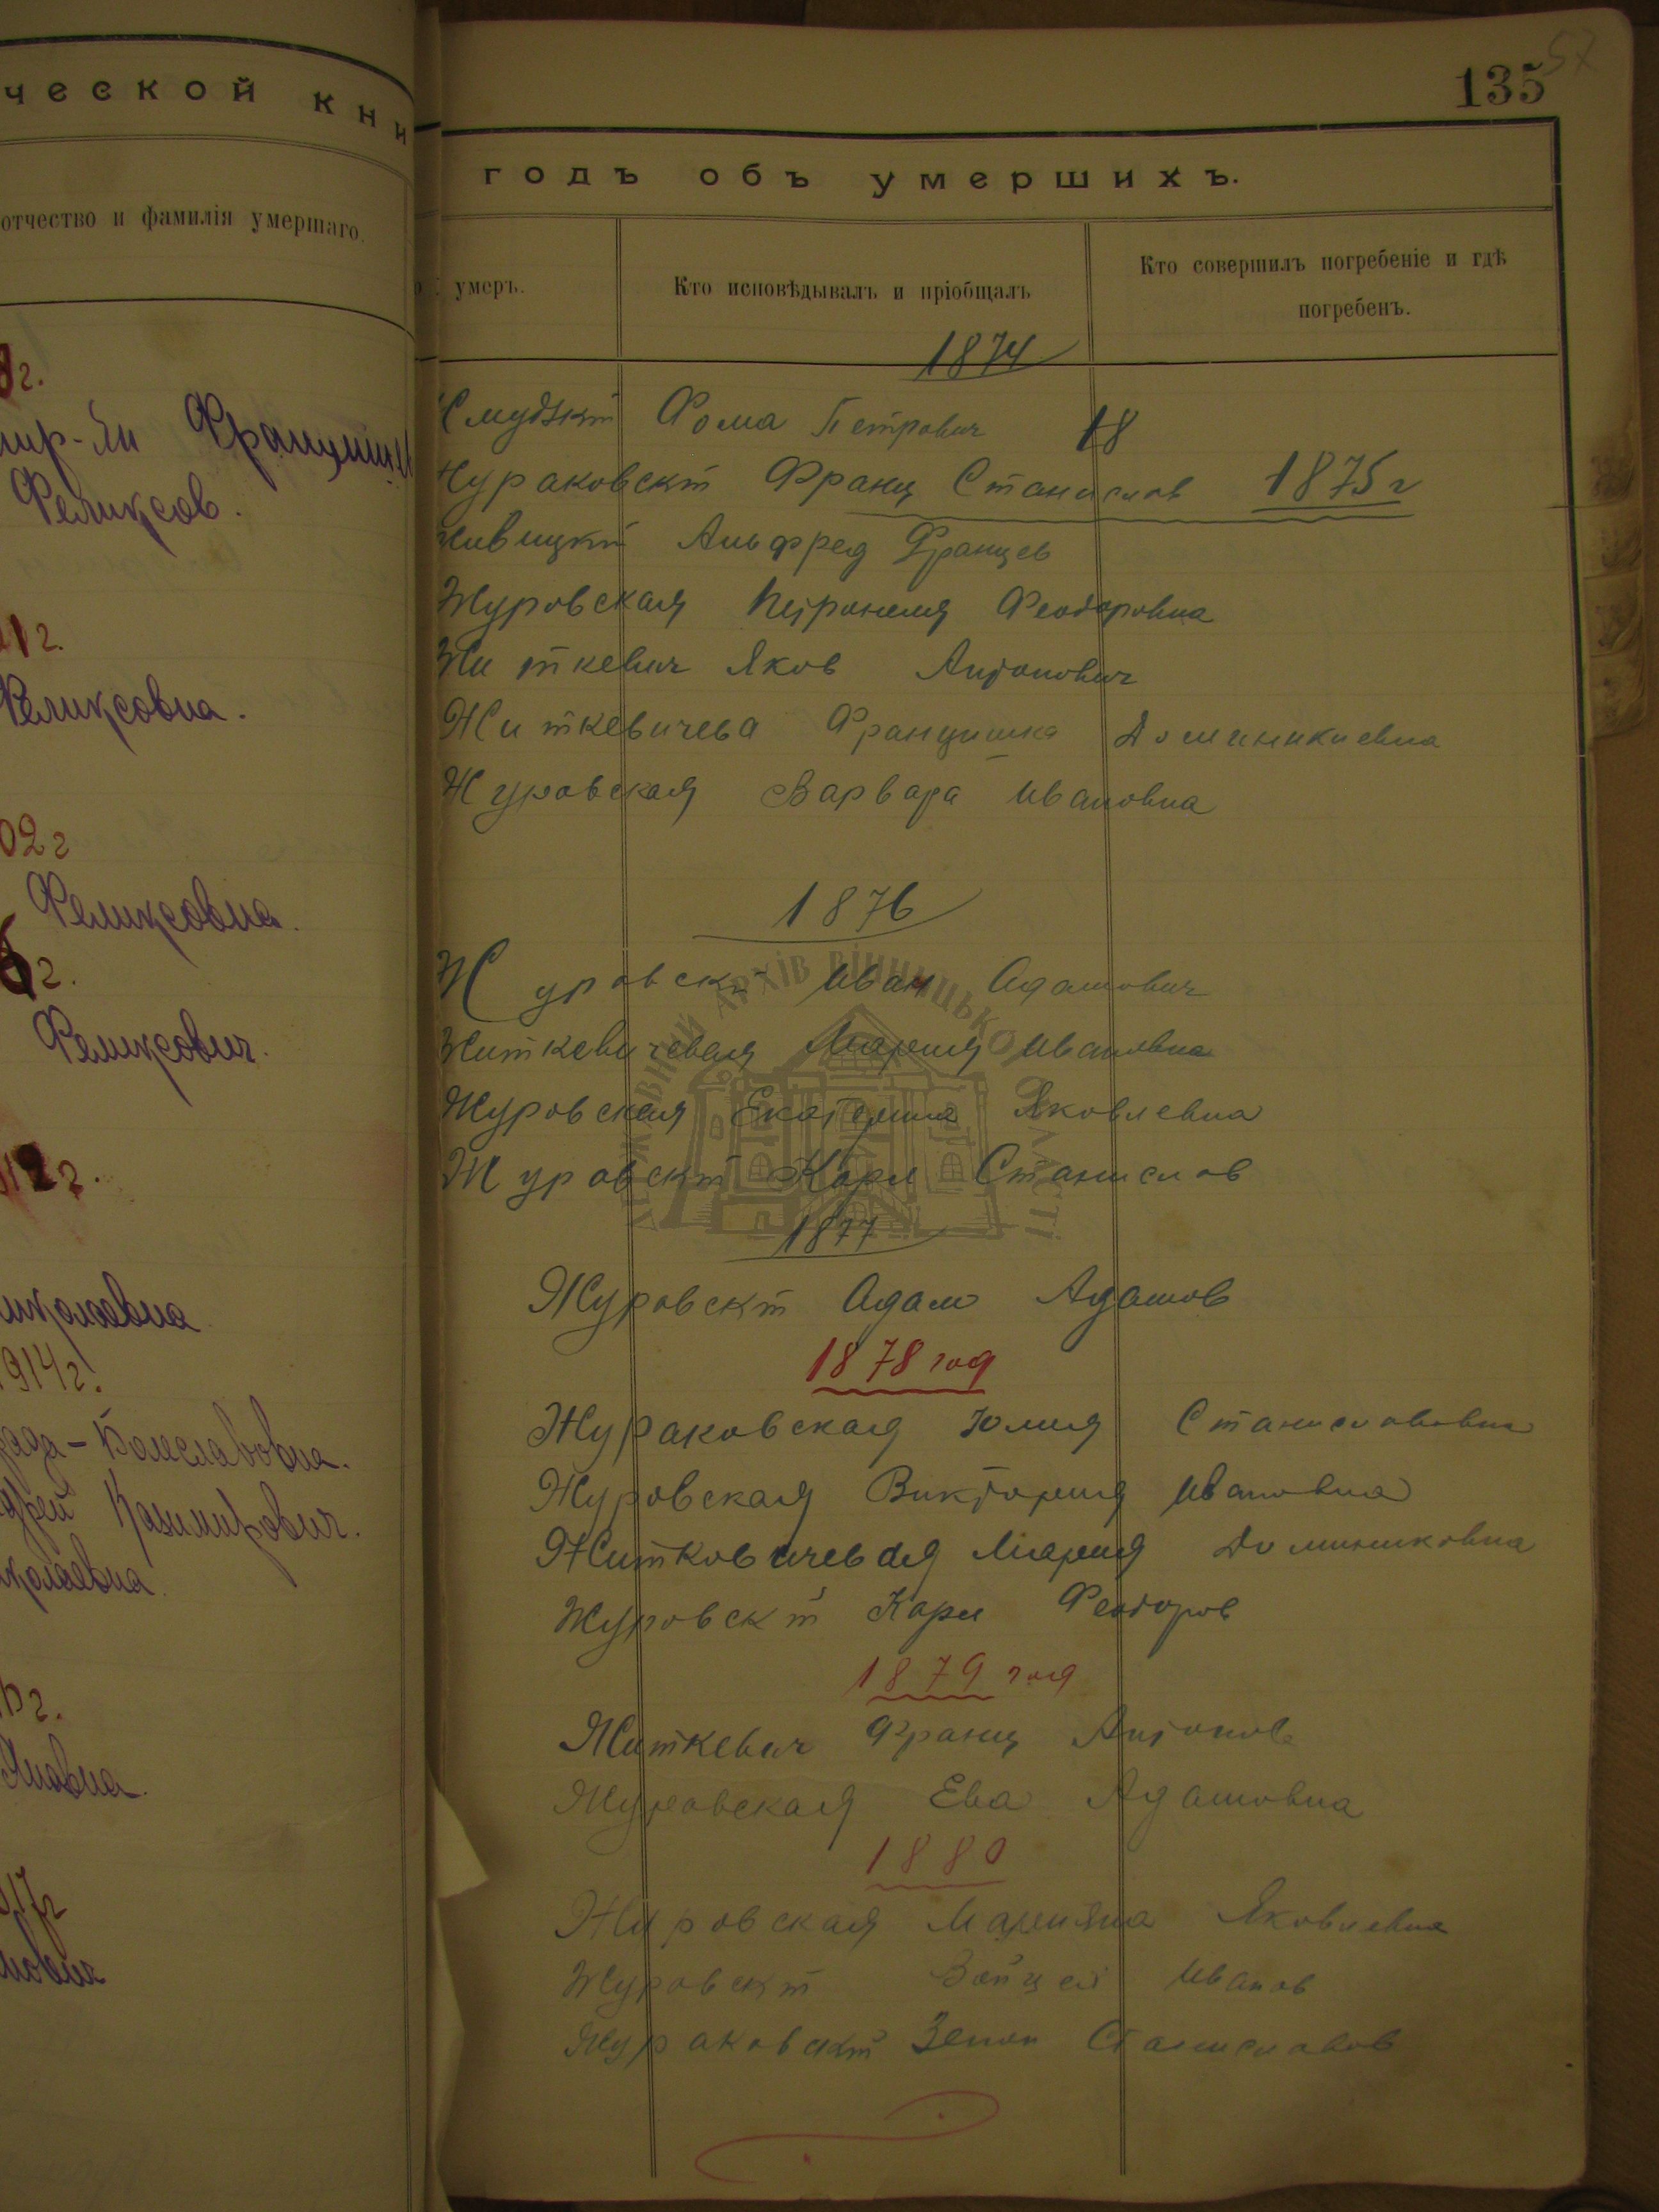 ческой кни
отчество и фамилія умершаго.
г.
Францишк
Феликсов.
1 г.
Феликсовна.
02 г
Феликсовна.
г.
Феликсович.
12 г.
иколаевна
1914 г.
Болеславовна.
Казимирович.
колаевна.
г.
17 г
135
57
годъ объ умершихъ.
умеръ.
Кто исповѣдывалъ и пріобщалъ
Кто совершилъ погребеніе и гдѣ
погребенъ.
1874
Жмудзкій Фома Петрович 18
Жураковскій Франц Станислов 1875 г
Альфред Францев
Журовская Петронеля Феодоровна
Житкевич Яков Антонович
Житкевичева Францишка Доминикиевна
Журовская Варвара Ивановна
1876
Журовскій Иван Адамович
Житкевичевая Мария Ивановна
Журовская Екатерина Яковлевна
Журовскій Карл Станислов
1877
Журовскій Адам Адамов
1878 год
Жураковская Юлия Станиславовна
Журовская Виктория Ивановна
Житковичевая Мария Доминиковна
Журовскій Карл Феодоров
1879 год
Житкевич Франц Антонов
Журовская Ева Адамовна
1880
Журовская Марияна Яковлевна
Журовскій Войцех Иванов
Жураковскій Зенон Станиславов
ДЕРЖАВНИЙ АРХІВ ВІННИЦЬКОЇ ОБЛАСТІ